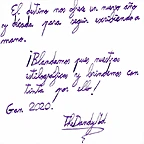 El destino nos ofrece un nuevo año
y década para seguir escribiendo a
mano.
¡Blandamos pues nuestras
estilográficas y brindemos con
tinta por ello!
Gan. 2020.